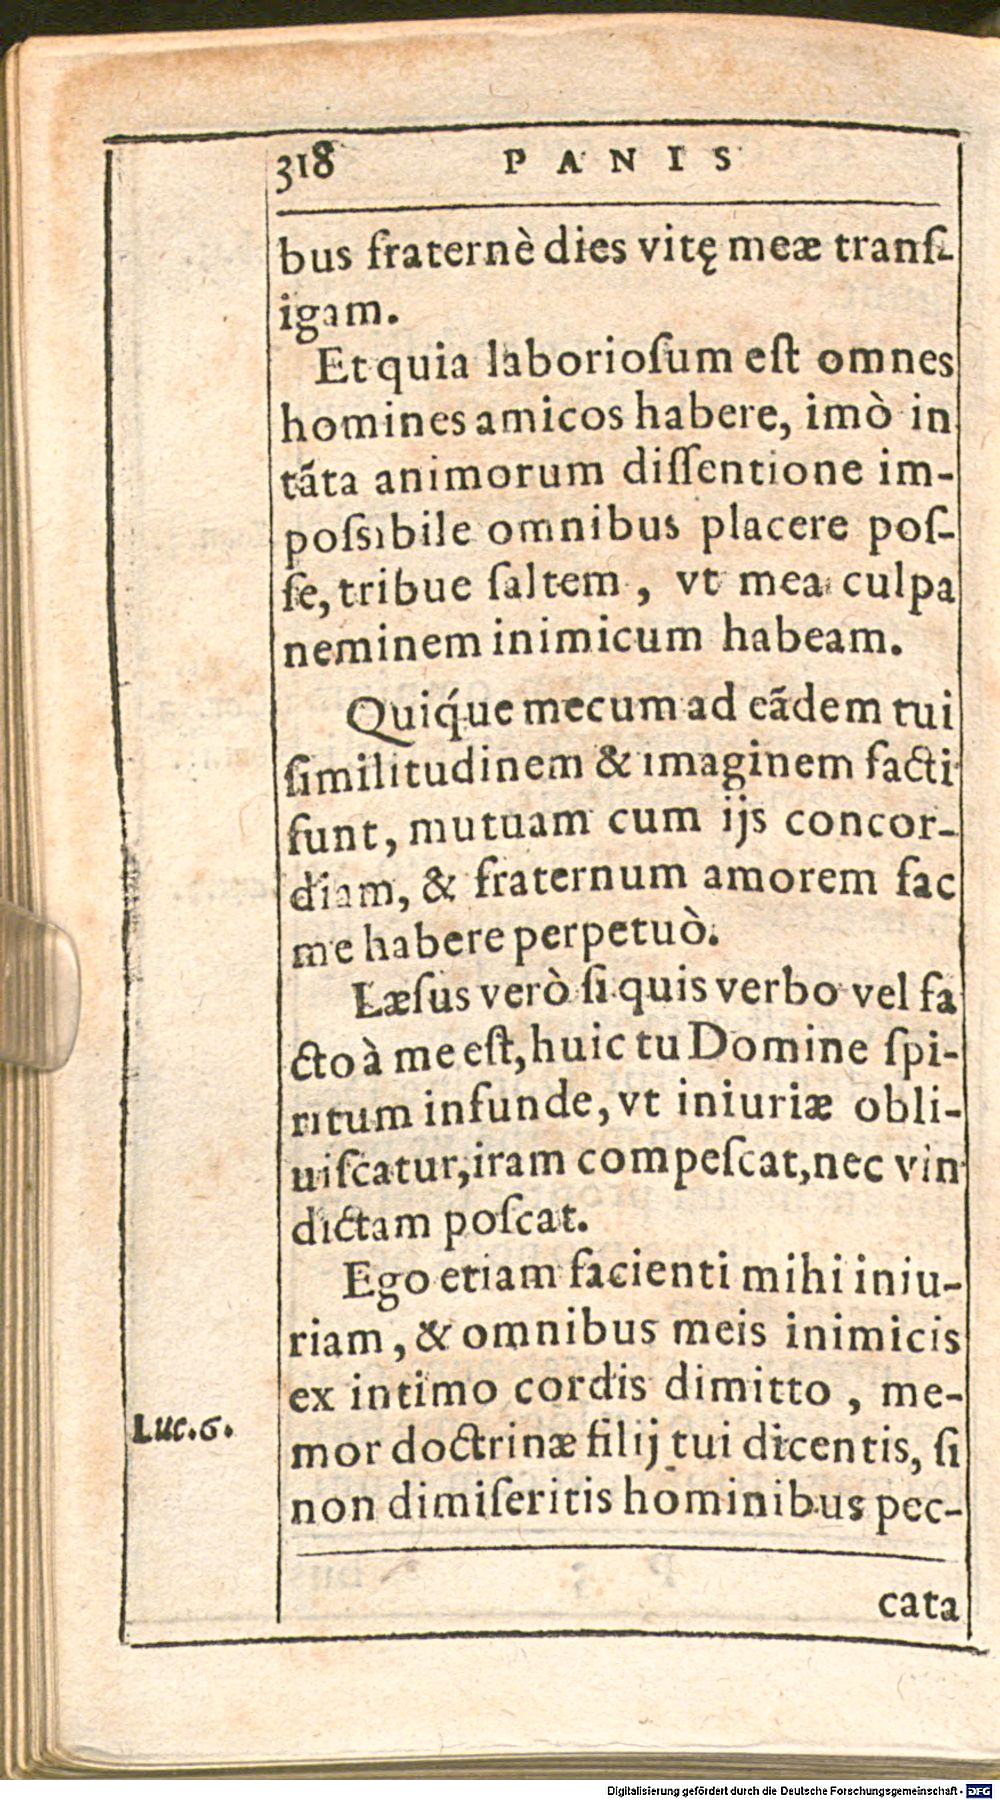 318 PANIS
bus fraternè dies vitę meæ transſi-
igam.
Et quia laborioſum eſt omnes
homines amicos habere, imò in
tãta animorum diſſentione im-
poſsibile omnibus placere poſ-
ſe, tribue ſaltem, vt mea culpa
neminem inimicum habeam.
Quiq́ue mecum ad eãdem tui
ſimilitudinem & imaginem facti
ſunt, mutuam cum ijs concor-
diam, & fraternum amorem fac
me habere perpetuò.
Læſus verò ſi quis verbo vel fa
cto à me eſt, huic tu Domine ſpi-
ritum infunde, vt iniuriæ obli-
uiſcatur, iram compeſcat, nec vin
dictam poſcat.
Ego etiam facienti mihi iniu-
riam, & omnibus meis inimicis
ex intimo cordis dimitto, me-
Luc. 6.
mor doctrinæ filij tui dicentis, ſi
non dimiſeritis hominibus pec-
cata
Digitalisierung gefördert durch die Deutsche Forschungsgemeinschaft - DFG